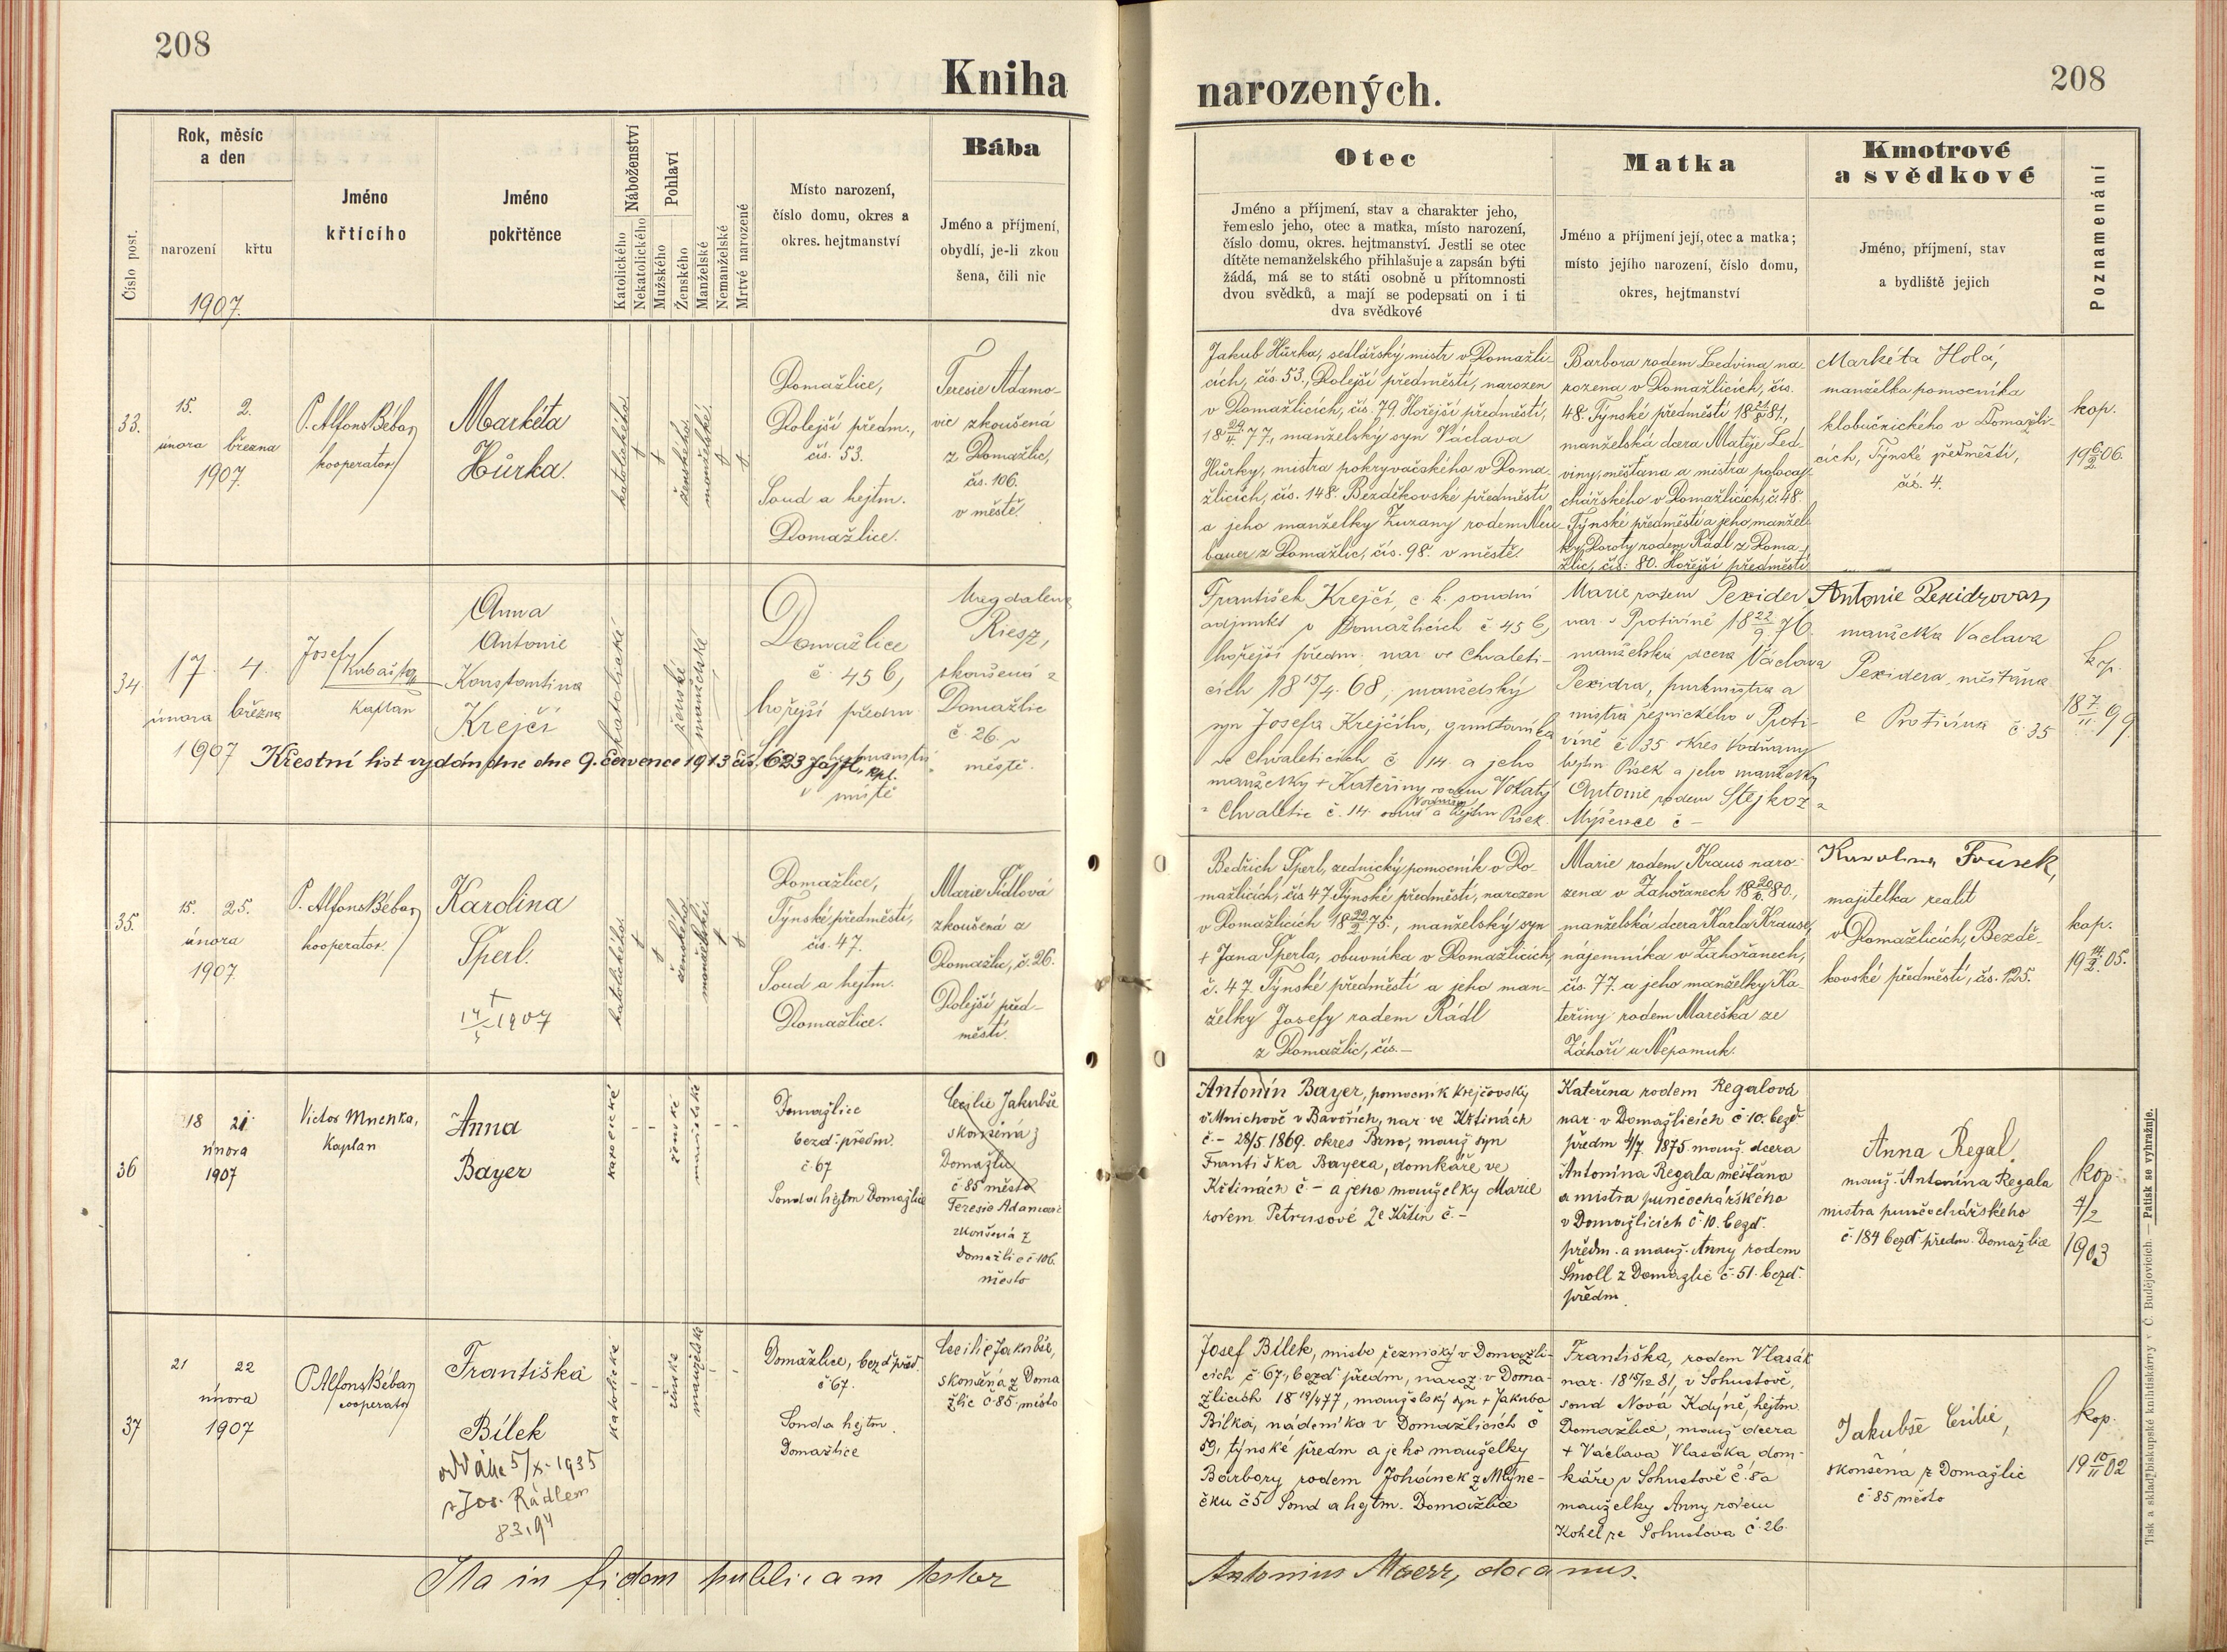 208
Kniha
narozených.
208
Číslo post.
Rok, měsíc
a den
narození
křtu
1907.
Jméno
křtícího
Jméno
pokřtěnce
Náboženství
Katolického
Nekatolického
Pohlaví
Mužského
Ženského
Manželské
Nemanželské
Mrtvé narozené
Místo narození,
číslo domu, okres a
okres. hejtmanství
Bába
Jméno a příjmení,
obydlí, je-li zkou
šena, čili nic
Otec
Jméno a příjmení, stav a charakter jeho,
řemeslo jeho, otec a matka, místo narození,
číslo domu, okres. hejtmanství. Jestli se otec
dítěte nemanželského přihlašuje a zapsán býti
žádá, má se to státi osobně u přítomnosti
dvou svědků, a mají se podepsati on i ti
dva svědkové
Matka
Jméno a příjmení její, otec a matka;
místo jejího narození, číslo domu,
okres, hejtmanství
Kmotrové
a svědkové
Jméno, příjmení, stav
a bydliště jejich
Poznamenání
33.
15.
února
2.
března
1907.
P. Alfons Béban
kooperator
Markéta
Hůrka.
katolického
ženského
manželské
Domažlice,
Dolejší předm.,
čís. 53.
Soud a hejtm.
Domažlice.
Teresie Adamo-
vic zkoušená
z Domažlic,
čís. 106.
v městě.
Jakub Hůrka, sedlářský mistr v Domažli-
cích, čís. 53., Dolejší předměstí, narozen
v Domažlicích, čís. 79. Hořejší předměstí,
18 29/4. 77., manželský syn Václava
Hůrky, mistra pokryvačského v Doma-
žlicích, čís. 148. Bezděkovské předměstí
a jeho manželky Zuzany rodem Neu-
bauer z Domažlic, čís. 98. v městě.
Barbora rodem Ledvina na-
rozena v Domažlicích, čís.
48. Týnské předměstí 81.,
manželská dcera Matěje Led-
viny, měštana a mistra
v Domažlicích, č. 48.
Týnské předměstí a jeho manžel-
ky Doroty rodem Rádl z Doma-
žlic, čís. 80. Hořejší předměstí
Markéta Holá,
manželka pomocníka
kloboučnického v Domažli-
cích, Týnské předměstí,
čís. 4.
kop.
19 6/2. 06.
34.
17.
února
4.
března
1907
Josef Kubašta
Kaplan
Anna
Antonie
Konstantina
Krejčí
katolické
ženské
manželské
Domažlice
č. 456,
hořejší předm
v místě
Magdalena
Riesz,
skoušená z
Domažlic
č. 26. v
městě.
Křestní list vydán dne 9. července 1913 čís. 623
František Krejčí, c. k. soudní
adjunkt v Domažlicích č 456,
hořejší předm. nar. ve Chvaleti-
cích 18 15/4. 68, manželský
syn Josefa Krejčího, gruntovníka
ve Chvaleticích č. 14. a jeho
manželky + Kateřiny rodem Vokatý
z Chvaletic č. 14. okres Vodňany a hejtm Písek.
Marie rodem Pexider,
nar. v Protivíně 18 22/9. 76.
manželská dcera Václava
Pexidra, purkmistra a
mistra řeznického v Proti-
víně č 35 okres Vodňany
hejtm Písek a jeho manželky
Antonie rodem Stejkoz z
Myšenec č –
Antonie Pexidrova,
manželka Vaclava
Pexidera, měštana
z Protivína č. 35
kop.
18 7/11. 99.
35.
15.
25.
února
1907.
P. Alfons Béban
kooperator.
Karolina
Šperl.
+
1907
katolického
ženského
manželské
Domažlice,
Týnské předměstí,
čís. 47.
Soud a hejtm.
Domažlice.
Marie Šidlová
zkoušená z
Domažlic, č. 26.
Dolejší před-
městí.
Bedřich Šperl, zednický pomocník v Do-
mažlicích, čís 47 Týnské předměstí, narozen
v Domažlicích 75., manželský syn
+ Jana Šperla, obuvníka v Domažlicích,
č. 47. Týnské předměstí a jeho man-
želky Josefy rodem Rádl
z Domažlic, čís. –
Marie rodem Kraus naro-
zena v Zahořanech 80.,
manželská dcera Karla Krause,
nájemníka v Zahořanech,
čís. 77. a jeho manželky Ka-
teřiny rodem Mareška ze
Záhoří u Nepomuk.
Karolina Fousek,
majitelka realit
v Domažlicích, Bezdě-
kovské předměstí, čís. 125.
kop.
19 14/2. 05.
36
18
21.
února
1907
Victor Mnenka,
Kaplan
Anna
Bayer
katolické
ženské
manželské
Domažlice
bezd. předm.
č. 67
Soud a hejtm Domažlice
Cecilie Jakubše
skoušená z
Domažlic
č. 85 město
Teresie Adamovic
zkoušená z
Domažlic č 106.
město
Antonín Bayer, pomocník krejčovský
v Mnichově v Bavořích, nar. ve Křtinách
č. – 28/5. 1869. okres Brno, manž syn
Františka Bayera, domkáře ve
Křtinách č – a jeho manželky Marie
rodem Petrusové ze Křtin č. –
Kateřina rodem Regalová
nar. v Domažlicích č 10. bezd.
předm 4/7 1875. manž. dcera
Antonína Regala měštana
a mistra punčochářského
v Domažlicích č 10. bezd.
předm. a manž. Anny rodem
Šmoll z Domažlic č. 51. bezd.
předm.
Anna Regal,
manž. Antonína Regala
mistra punčochářského
č. 184 bezd předm. Domažlice
kop.
7/2
1903
37
21
22
února
1907
P Alfons Béban
cooperator
Františka
Bílek
oddána 5/X. 1935
s Jos. Rádlem
83, 94
katolické
ženské
manželské
Domažlice, bezd před.
č 67.
Soud a hejtm.
Domažlice
Cecilie Jakubše,
skoušená z Doma-
žlic č. 85. město
Josef Bílek, mistr řeznický v Domažli-
cích č 67, bezd předm, naroz. v Doma-
žlicích 18 19/4 77, manželský syn + Jakuba
Bílka, nádeníka v Domažlicích č
59, týnské předm a jeho manželky
Barbory rodem Johánek z Mlýne-
čku č 5 Soud a hejtm. Domažlice
Františka, rodem Vlasák
nar. 81, v Sohustově,
soud Nová Kdýně, hejtm.
Domažlice, manž dcera
+ Václava Vlasáka, dom-
káře v Sohustově č. 8 a
manželky Anny rodem
Kohel ze Sohustova č. 26.
Jakubše Cecilie,
skoušena z Domažlic
č 85 město
kop.
19 10/11 02
Ita in fidem publicam testor
Antonius Maerz, decanus.
Tisk a sklad biskupské knihtiskárny v Č. Budějovicích. — Patisk se vyhražuje.